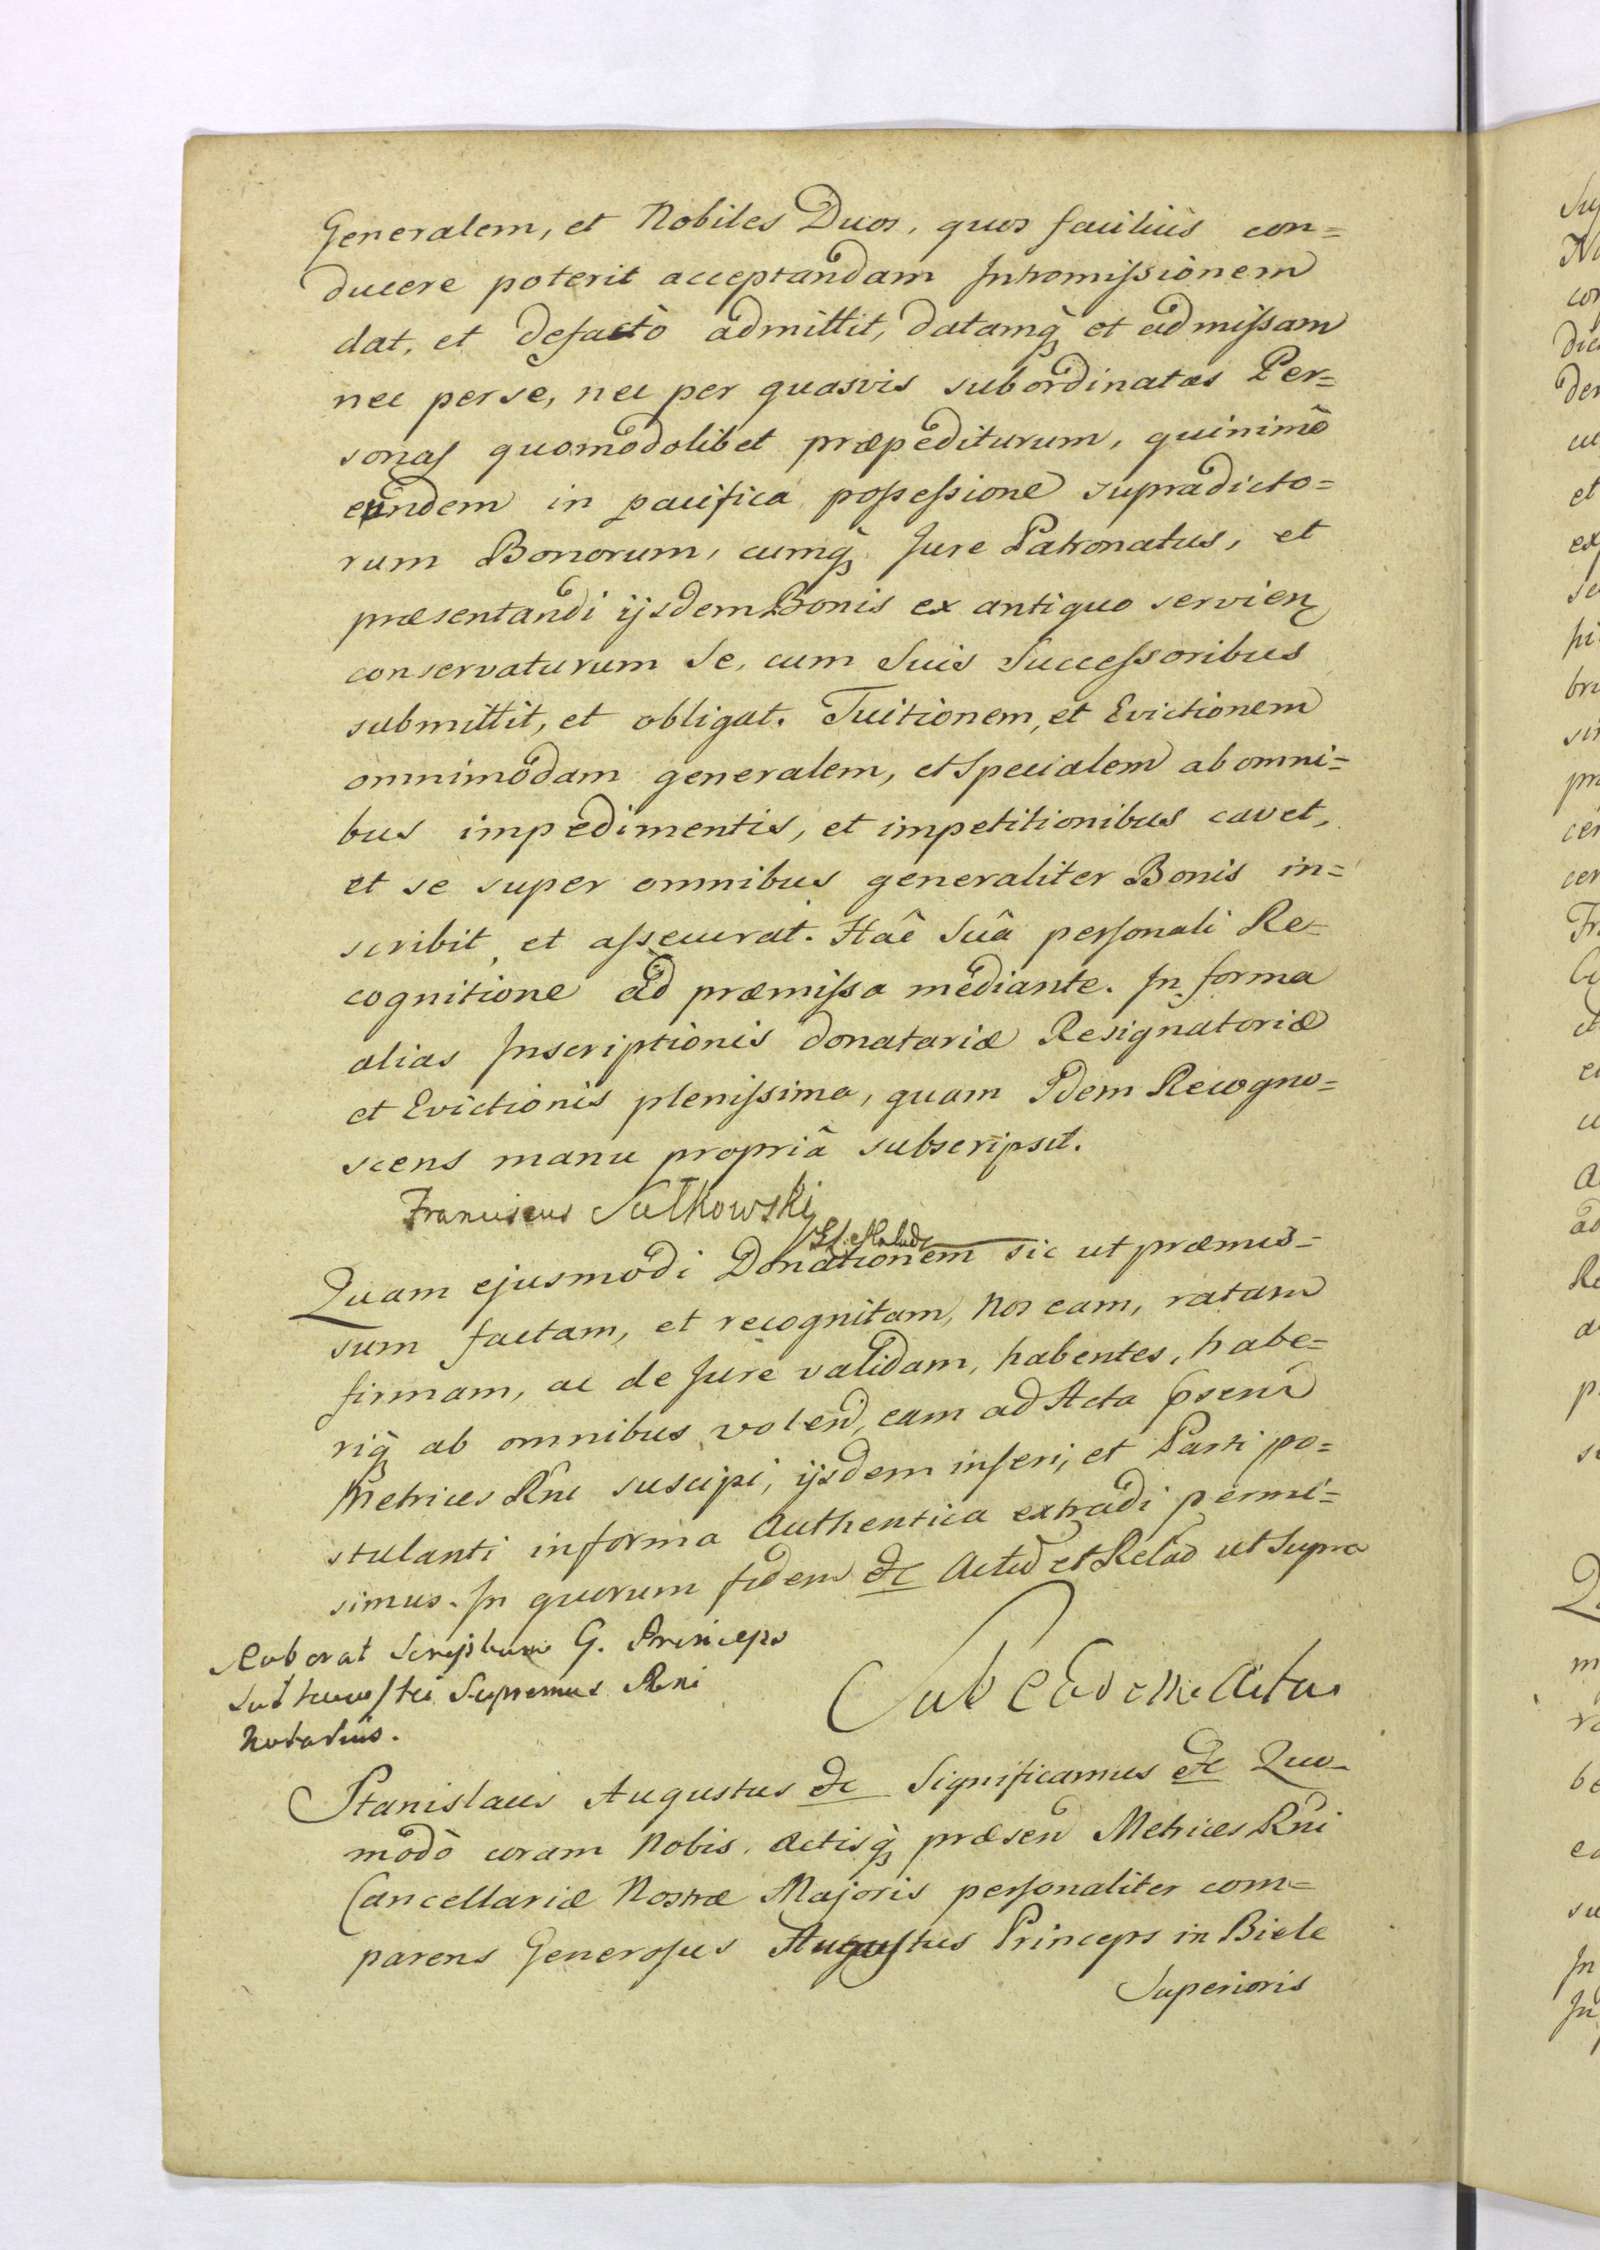 Generalem, et Nobiles Duos, quos faciliùs con=
ducere poterit acceptandam Intromissionem
dat, et defactò admittit, datamq̀ et admissam
nec per se, nec per quasvis subordinatas Per=
sonas quomodolibet præpediturum, quinimò
eundem in pacifica possessione supradicto=
rum Bonorum, cumq̀ Jure Patronatus, et
præsentandi ijsdem Bonis ex antiquo servien
conservaturum Se, cum Suis Successoribus
submittit, et obligat. Tuitionem, et Evictionem
omnimodam generalem, et Specialem ab omni=
bus impedimentis, et impetitionibus cavet,
et se super omnibus generaliter Bonis in=
scribit, et assecurat. Hac Suâ personali Re=
cognitione ad præmissa mediante. In forma
alias Inscriptionis donatariæ Resignatoriæ
et Evictionis plenissima, quam Idem Recogno=
scens manu propriâ subscripsit.
Franciscus Sułkowski
Quam ejusmodi Donationem sic ut præmis=
sum factam, et recognitam, Nos eam, ratam
firmam, ac de Jure validam, habentes, habe=
riq̀ ab omnibus volen, eam ad Acta psen
Metrices Rni suscipi, ijsdem inseri, et Parti po=
stulanti in forma Authentica extradi permi=
simus. In quorum fidem &c Actu et Relao ut Supra
Roborat Scriptum G. Princeps
Supremus Rni
Notarius.
Sub Eodem Actu
Stanislaus Augustus &c Significamus &c Quo=
modò coram Nobis, Actisq̀ præsen Metrices Rni
Cancellariæ Nostræ Majoris personaliter com=
parens Generosus Augustus Princeps in Biele
Superioris